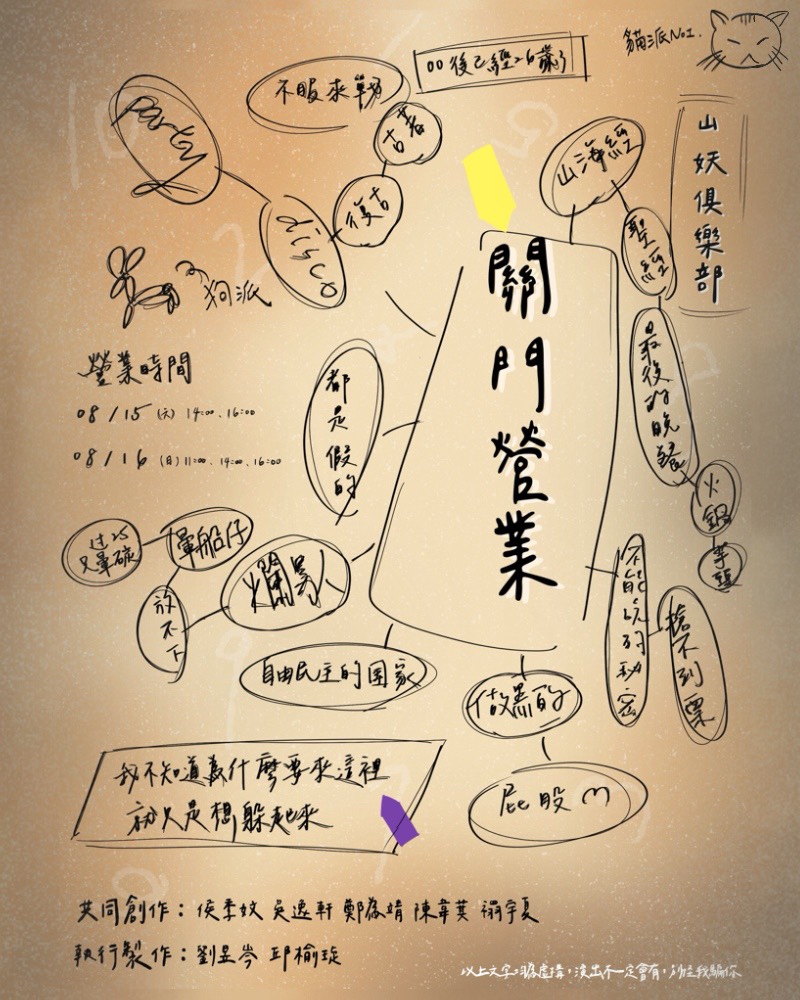 貓派No1.
00後已經26歲了
不服來戰
party
古著
復古
disco
山海經
聖經
山妖俱樂部
狗派
關門營業
最後的晚餐
火鍋
芋頭
營業時間
08/15(六) 14:00、16:00
08/16(日)11:00、14:00、16:00
都是假的
暈船仔
放不下
爛男人
不能說的秘密
搶不到票
自由民主的国家
做黑的
屁股
我不知道為什麼要來這裡
就只是想躲起來
共同創作：侯季妏 吳逸軒 鄭為靖 陳韋蓂 宇夏
執行製作：劉昱岑 邱榆琁
以上文字 虛構，演出不一定會有，別怪我騙你